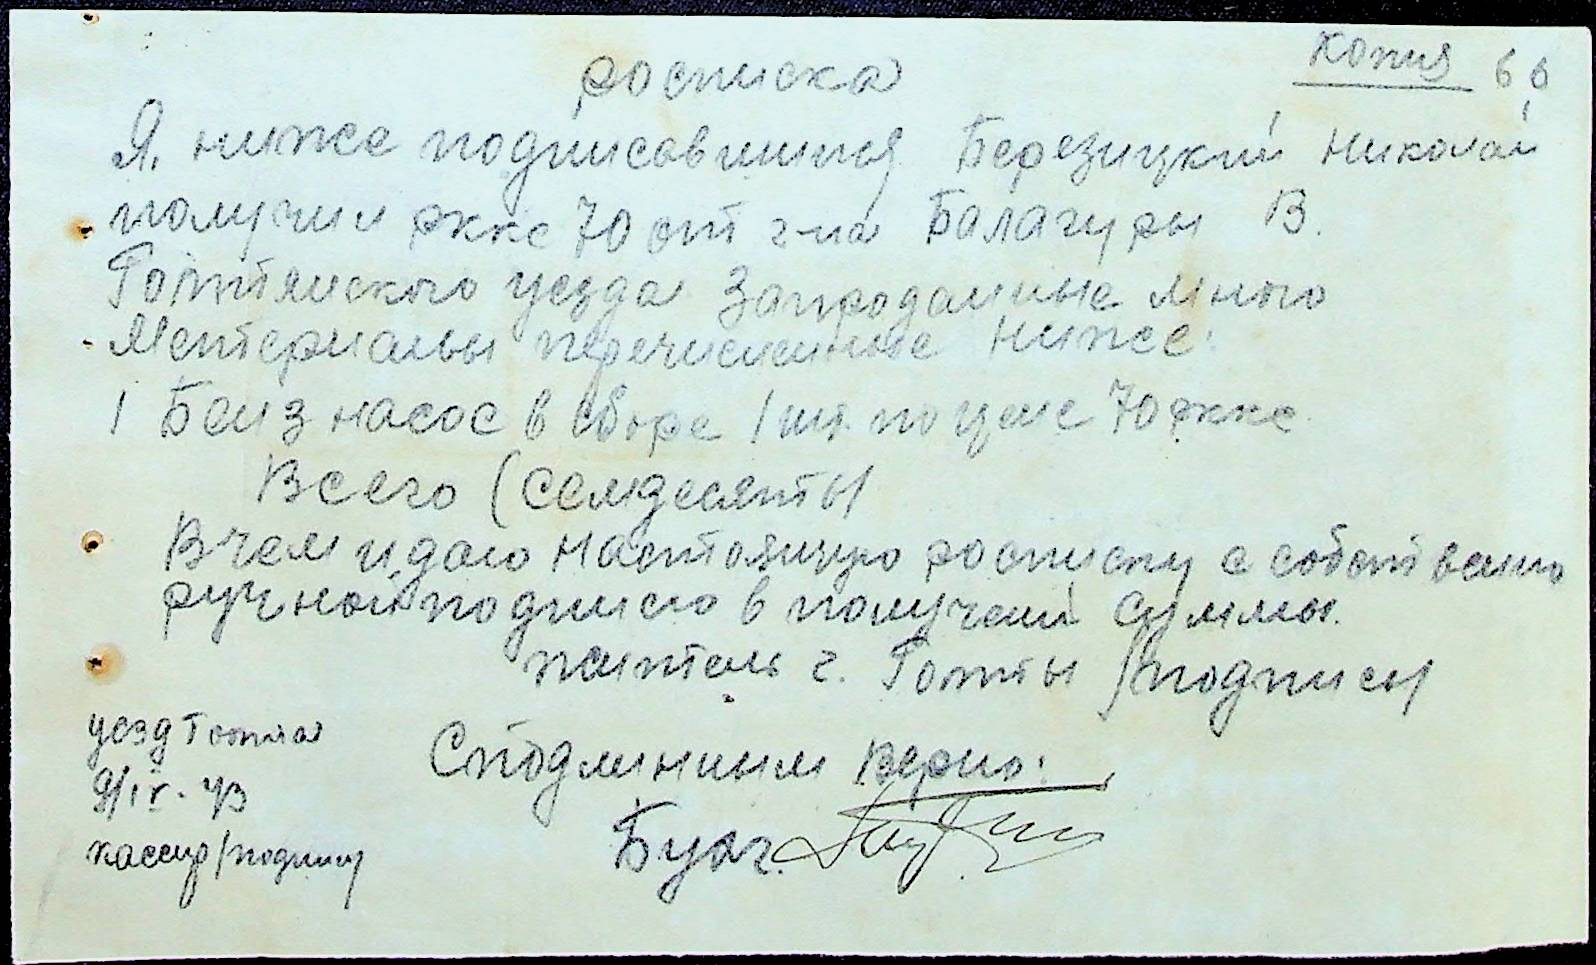 Копия 66
росписка
Я, ниже подписавшийся Березицкий Николай
получил ркке 70 от г-на Балагуры В.
Голтянского уезда Запроданные мною
Материалы перечисленные ниже:
1 Бенз насос в сборе 1 шт. по цене 70 ркке
Всего (семдесяты/
В чем и даю настоящую росписку с собственно
ручной подписю в получении суммы.
житель г. Голты /подпись/
уезд Голта
9/IV-43
кассир/подпись/
С подлинным верно:
Бухг.